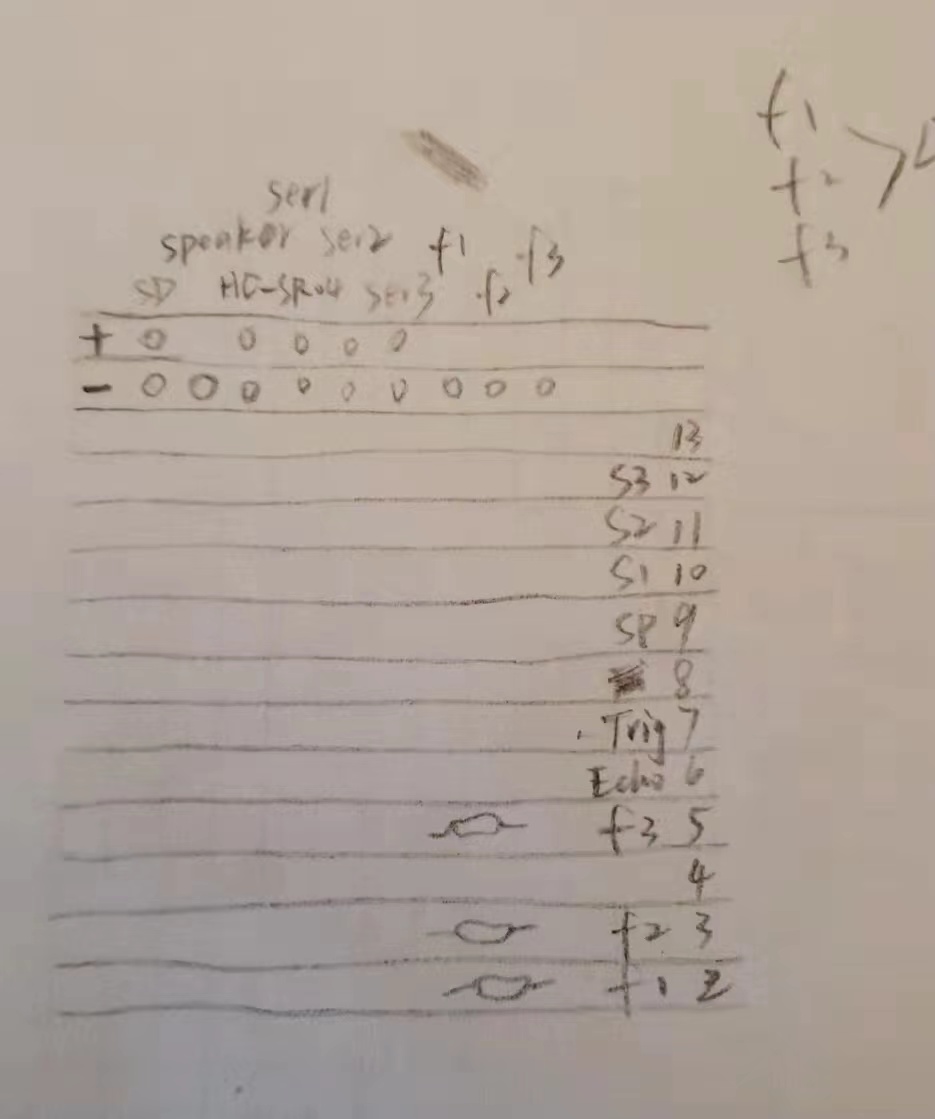 f1
f2
f3
ser1
speaker ser2 f1 f3
SD HC-SR04 ser3 f2
+ o o o o o
- o o o o o o o o o
13
S3 12
S2 11
S1 10
SP 9
8
Trig 7
Echo 6
f3 5
4
f2 3
f1 2